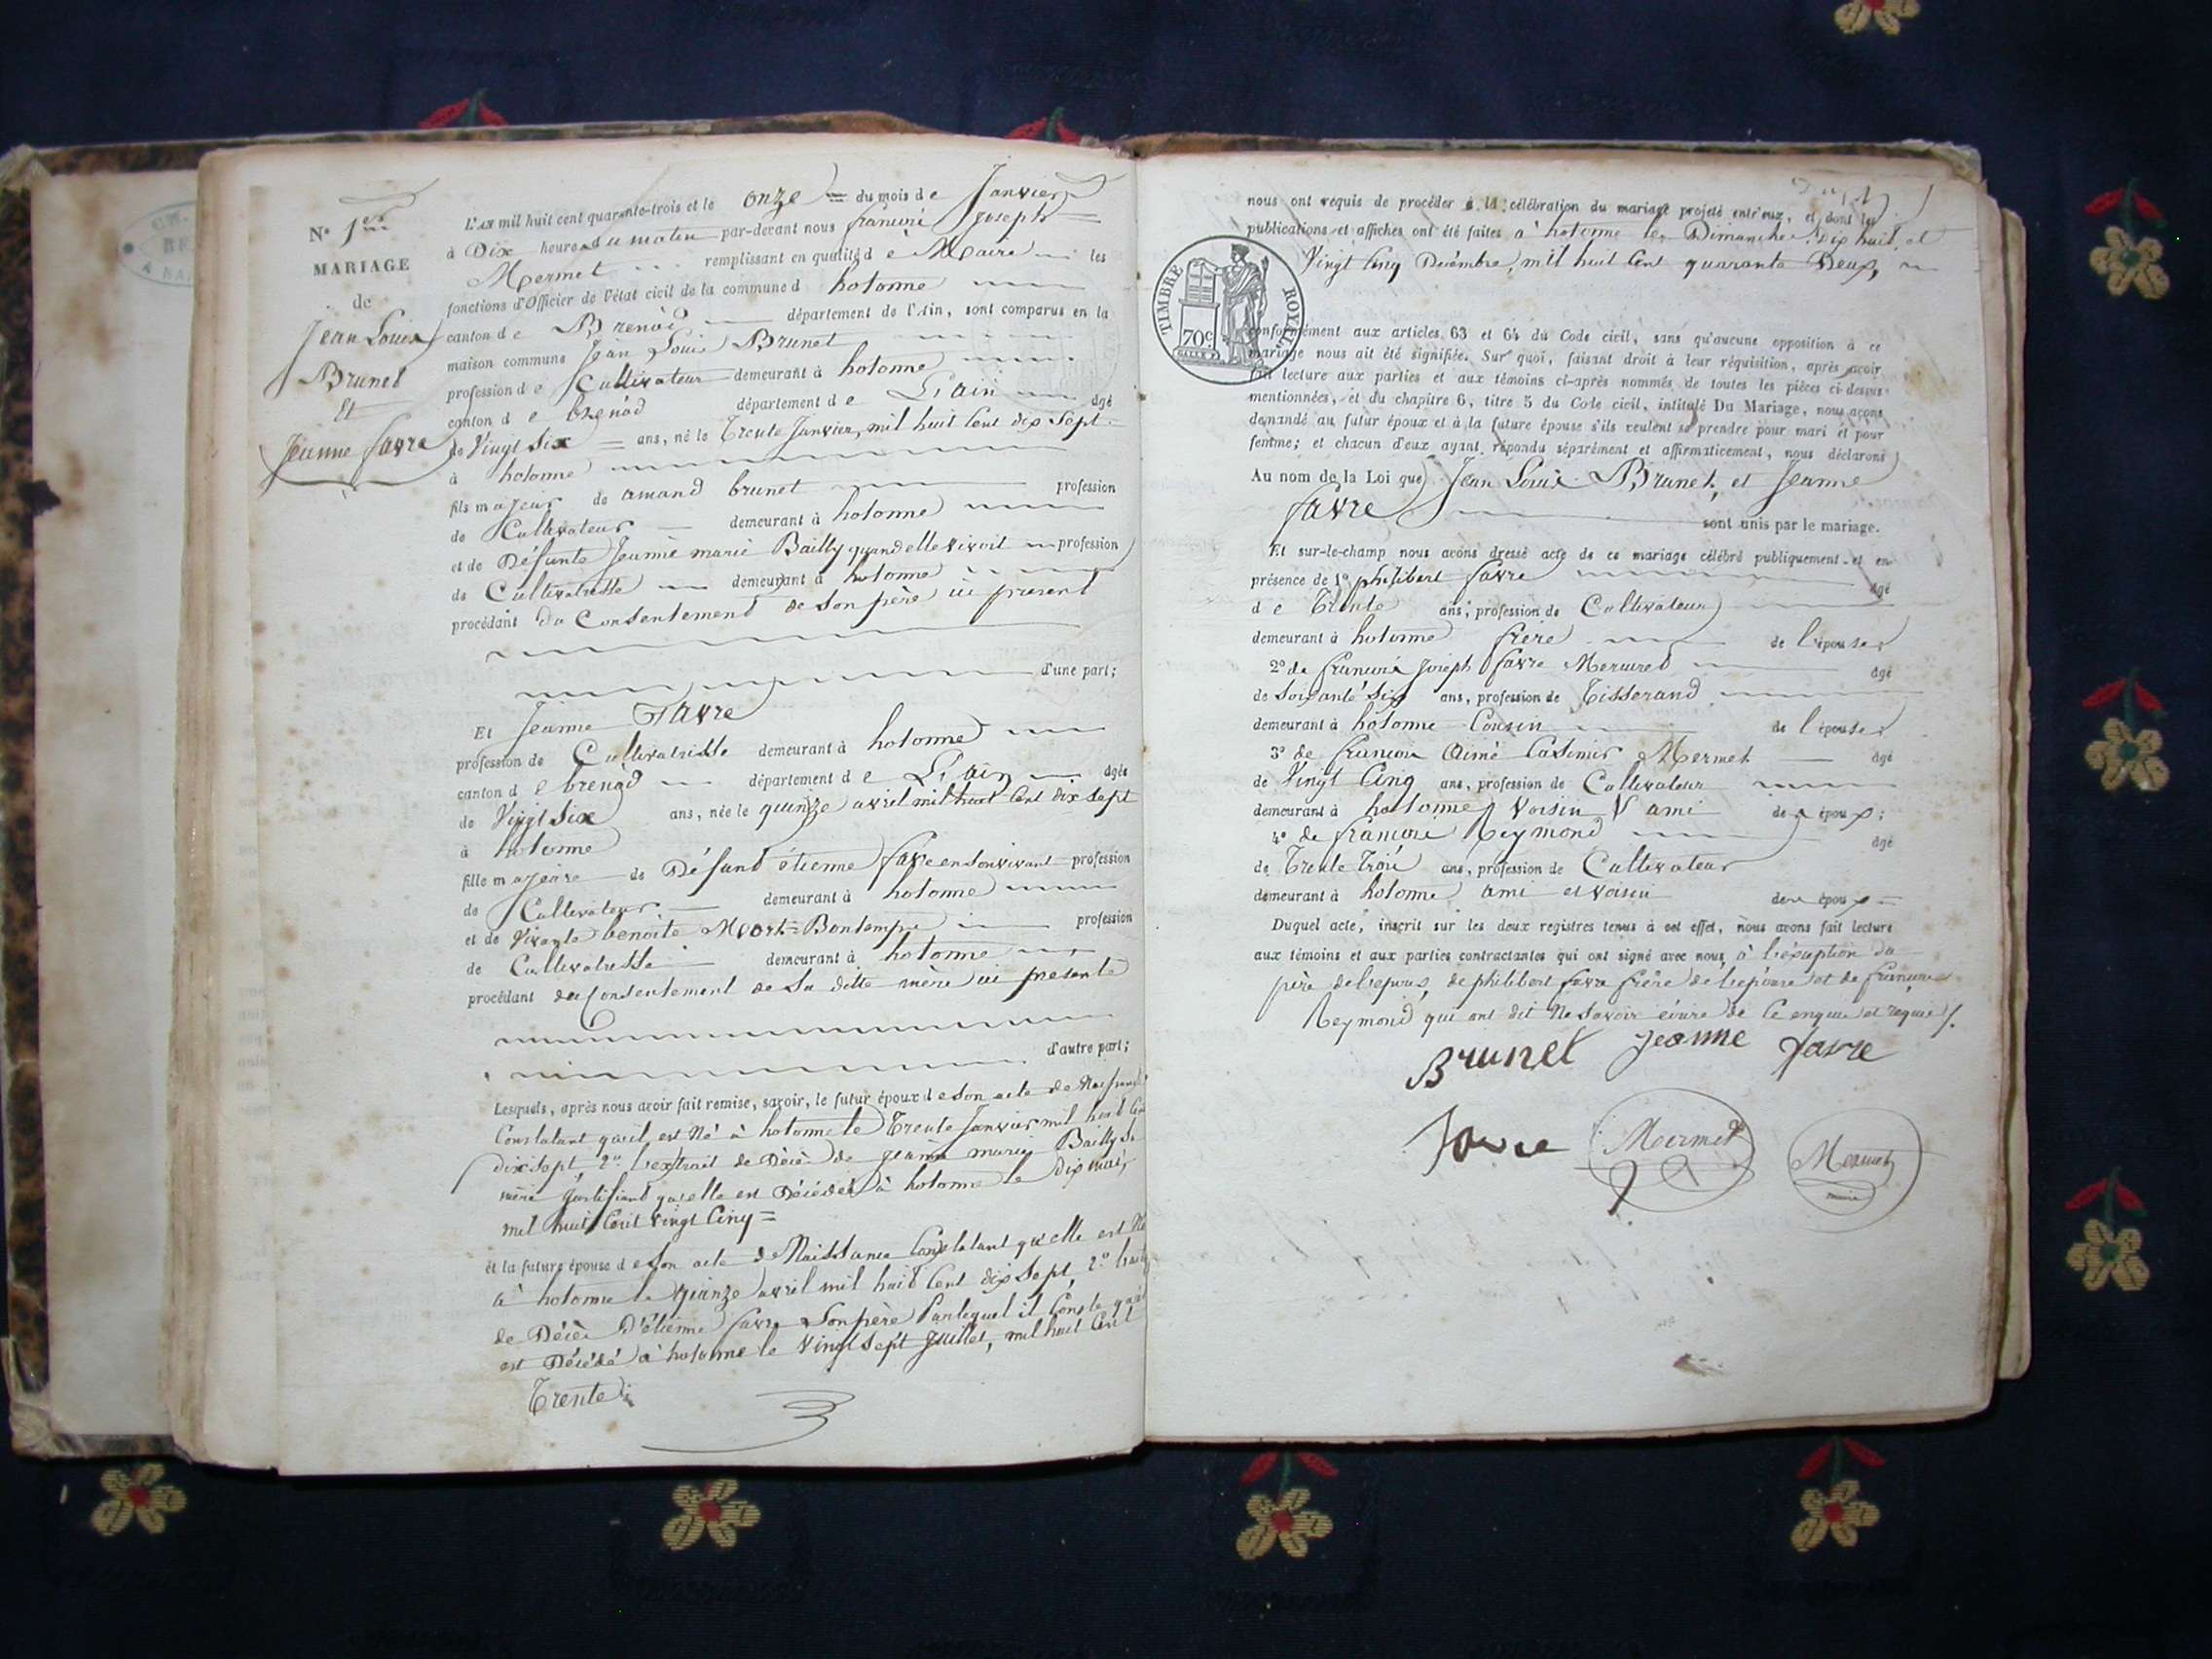 N° 1er
MARIAGE
de
Jean Louis
Brunet
Et
Jeanne favre
L'an mil huit cent quarante-trois et le onze du mois de Janvier
à Dix heures du matin par-devant nous françois Joseph
Mermet remplissant en qualité de Maire les
fonctions d'Officier de l'état civil de la commune d hotonne
canton de Brenod département de l'Ain, sont comparus en la
maison commune Jean Louis Brunet
profession de Cultivateur demeurant à hotonne
canton de brenod département de L'ain âgé
de Vingt Six ans, né le Trente Janvier, mil huit Cent dix Sept
à hotonne
fils majeur de amand brunet profession
de Cultivateur demeurant à hotonne
et de Défunte Jeanne marie Bailly quand elle vivoit profession
de Cultivatrisse demeurant à hotonne
procédant du Consentement de Son père ici présent
d'une part;
Et Jeanne Favre
profession de Cultivatrisse demeurant à hotonne
canton de brenod département de L'ain âgée
de Vingt Six ans, née le quinze avril mil huit Cent dix Sept
à hotonne
fille majeure de Défunt étienne favre en Son vivant profession
de Cultivateur demeurant à hotonne
et de Vivante benoite Mort=Bontemps profession
de Cultivatrisse demeurant à hotonne
procédant du Consentement de Sa ditte mère ici présente
d'autre part;
Lesquels, après nous avoir fait remise, savoir, le futur époux de Son acte de
Constatant qu'il est Né à hotonne le Trente Janvier mil huit
dix Sept, 2° l'extrait de Décè de jeanne marie Bailly Sa
mère justifiant qu'elle est Décédée à hotonne le Dix mai,
mil huit Cent Vingt Cinq =
et la future épouse de Son acte de Naissance Constatant qu'elle est Né
à hotonne le Quinze avril mil huit Cent dix Sept, 2°
de Décè D'étienne favre Son père Par lequel il Conste qu'il
est Décédé à hotonne le Vingt Sept Juillet, mil huit Cent
Trente
nous ont requis de procéder à la célébration du mariage projeté entr'eux, et dont les
publications et affiches ont été faites à hotonne les Dimanche Dix huit, et
Vingt Cinq Décembre, mil huit Cent quarante Deux,
TIMBRE ROYAL
70c
conformément aux articles 63 et 64 du Code civil, sans qu'aucune opposition à ce
mariage nous ait été signifiée. Sur quoi, faisant droit à leur réquisition, après avoir
fait lecture aux parties et aux témoins ci-après nommés de toutes les pièces ci-dessus
mentionnées, et du chapitre 6, titre 5 du Code civil, intitulé Du Mariage, nous avons
demandé au futur époux et à la future épouse s'ils veulent se prendre pour mari et pour
femme; et chacun d'eux ayant répondu séparément et affirmativement, nous déclarons
Au nom de la Loi que Jean Louis Brunet, et Jeanne
favre sont unis par le mariage.
Et sur-le-champ nous avons dressé acte de ce mariage célébré publiquement et en
présence de 1° philibert favre âgé
de Trente ans, profession de Cultivateur
demeurant à hotonne frère de l'épouse
2° de françois Joseph favre Mermet âgé
de Soixante Six ans, profession de Tisserand
demeurant à hotonne Cousin de l'épouse
3° de françois Aimé Casimir Mermet âgé
de Vingt Cinq ans, profession de Cultivateur
demeurant à hotonne Voisin & ami de époux;
4° de françois Reymond âgé
de Trente Trois ans, profession de Cultivateur
demeurant à hotonne ami et voisin de époux
Duquel acte, inscrit sur les deux registres tenus à cet effet, nous avons fait lecture
aux témoins et aux parties contractantes qui ont signé avec nous, à l'éxception du
père de l'epoux, de philibert favre frère de l'épouse et de françois
Reymond qui ont dit Ne Savoir écrire de Ce enquis et requis /.
Brunet Jeanne favre
favre Mermet Mermet
maire